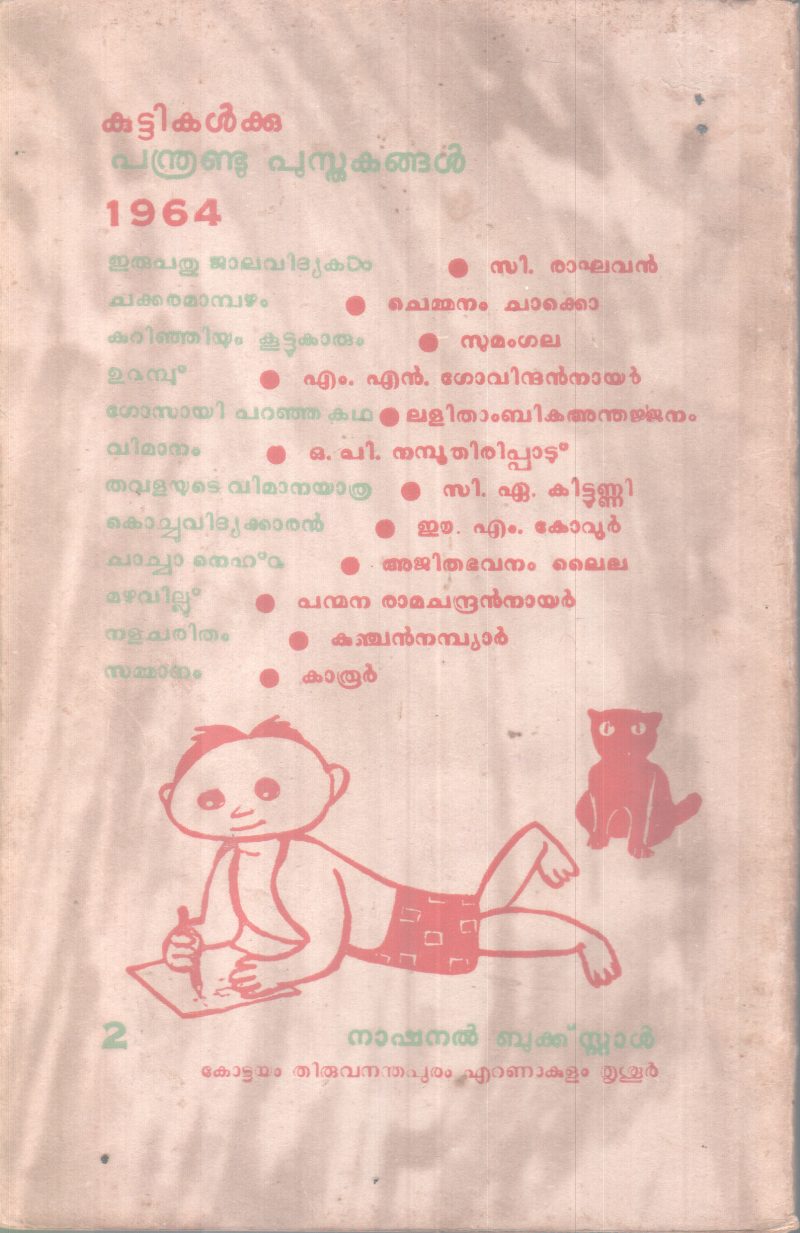 കുട്ടികൾക്കു
പന്ത്രണ്ടു പുസ്തകങ്ങൾ
1964
ഇരുപതു ജാലവിദ്യകൾ ● സി. രാഘവൻ
ചക്കരമാമ്പഴം ● ചെമ്മനം ചാക്കൊ
കുറിഞ്ഞിയും കൂട്ടുകാരും ● സുമംഗല
ഉറുമ്പ് ● എം. എൻ. ഗോവിന്ദൻനായർ
ഗോസായി പറഞ്ഞ കഥ ● ലളിതാംബികഅന്തർജ്ജനം
വിമാനം ● ഒ. പി. നമ്പൂതിരിപ്പാട്
തവളയുടെ വിമാനയാത്ര ● സി. ഏ. കിട്ടുണ്ണി
കൊച്ചുവിദ്യക്കാരൻ ● ഈ. എം. കോവൂർ
ചാച്ചാ നെഹ്റു ● അജിതഭവനം ലൈല
മഴവില്ലു് ● പന്മന രാമചന്ദ്രൻനായർ
നളചരിതം ● കുഞ്ചൻനമ്പ്യാർ
സമ്മാനം ● കാരൂർ
2 നാഷനൽ ബുക്ക് സ്റ്റാൾ
കോട്ടയം തിരുവനന്തപുരം എറണാകുളം തൃശ്ശൂർ